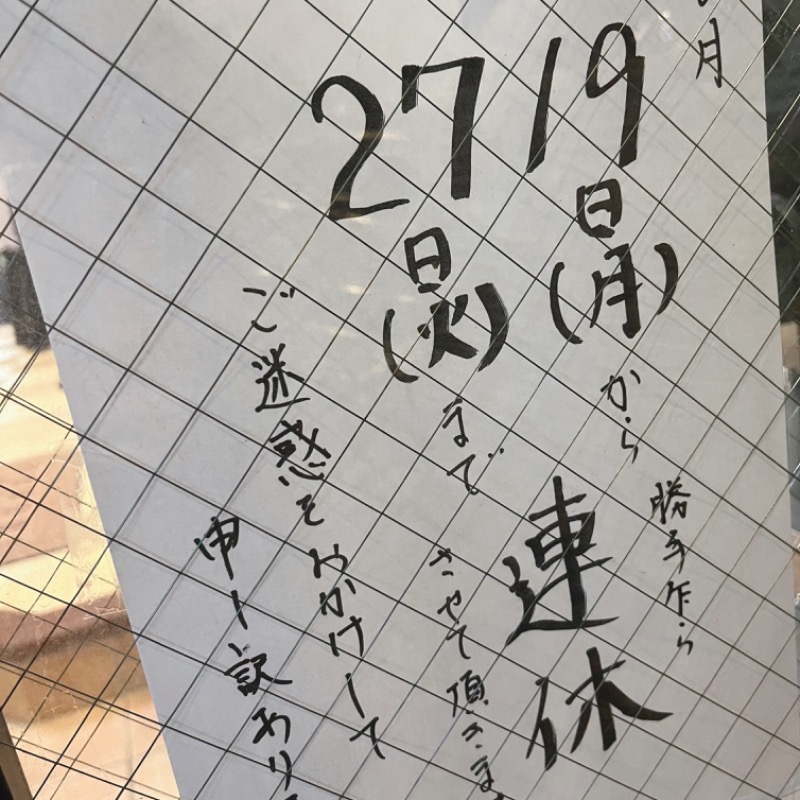 月
19日(月)から
27日(火)まで
勝手乍ら
連休
させて頂きま
ご迷惑をおかけして
申し訳あり